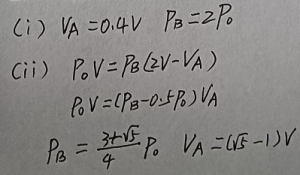 (i) V_A=0.4V P_B=2P_0
(ii) P_0V=P_B(2V-V_A)
P_0V=(P_B-0.5P_0)V_A
P_B=\frac{3+√5}{4}P_0 V_A=(√5-1)V